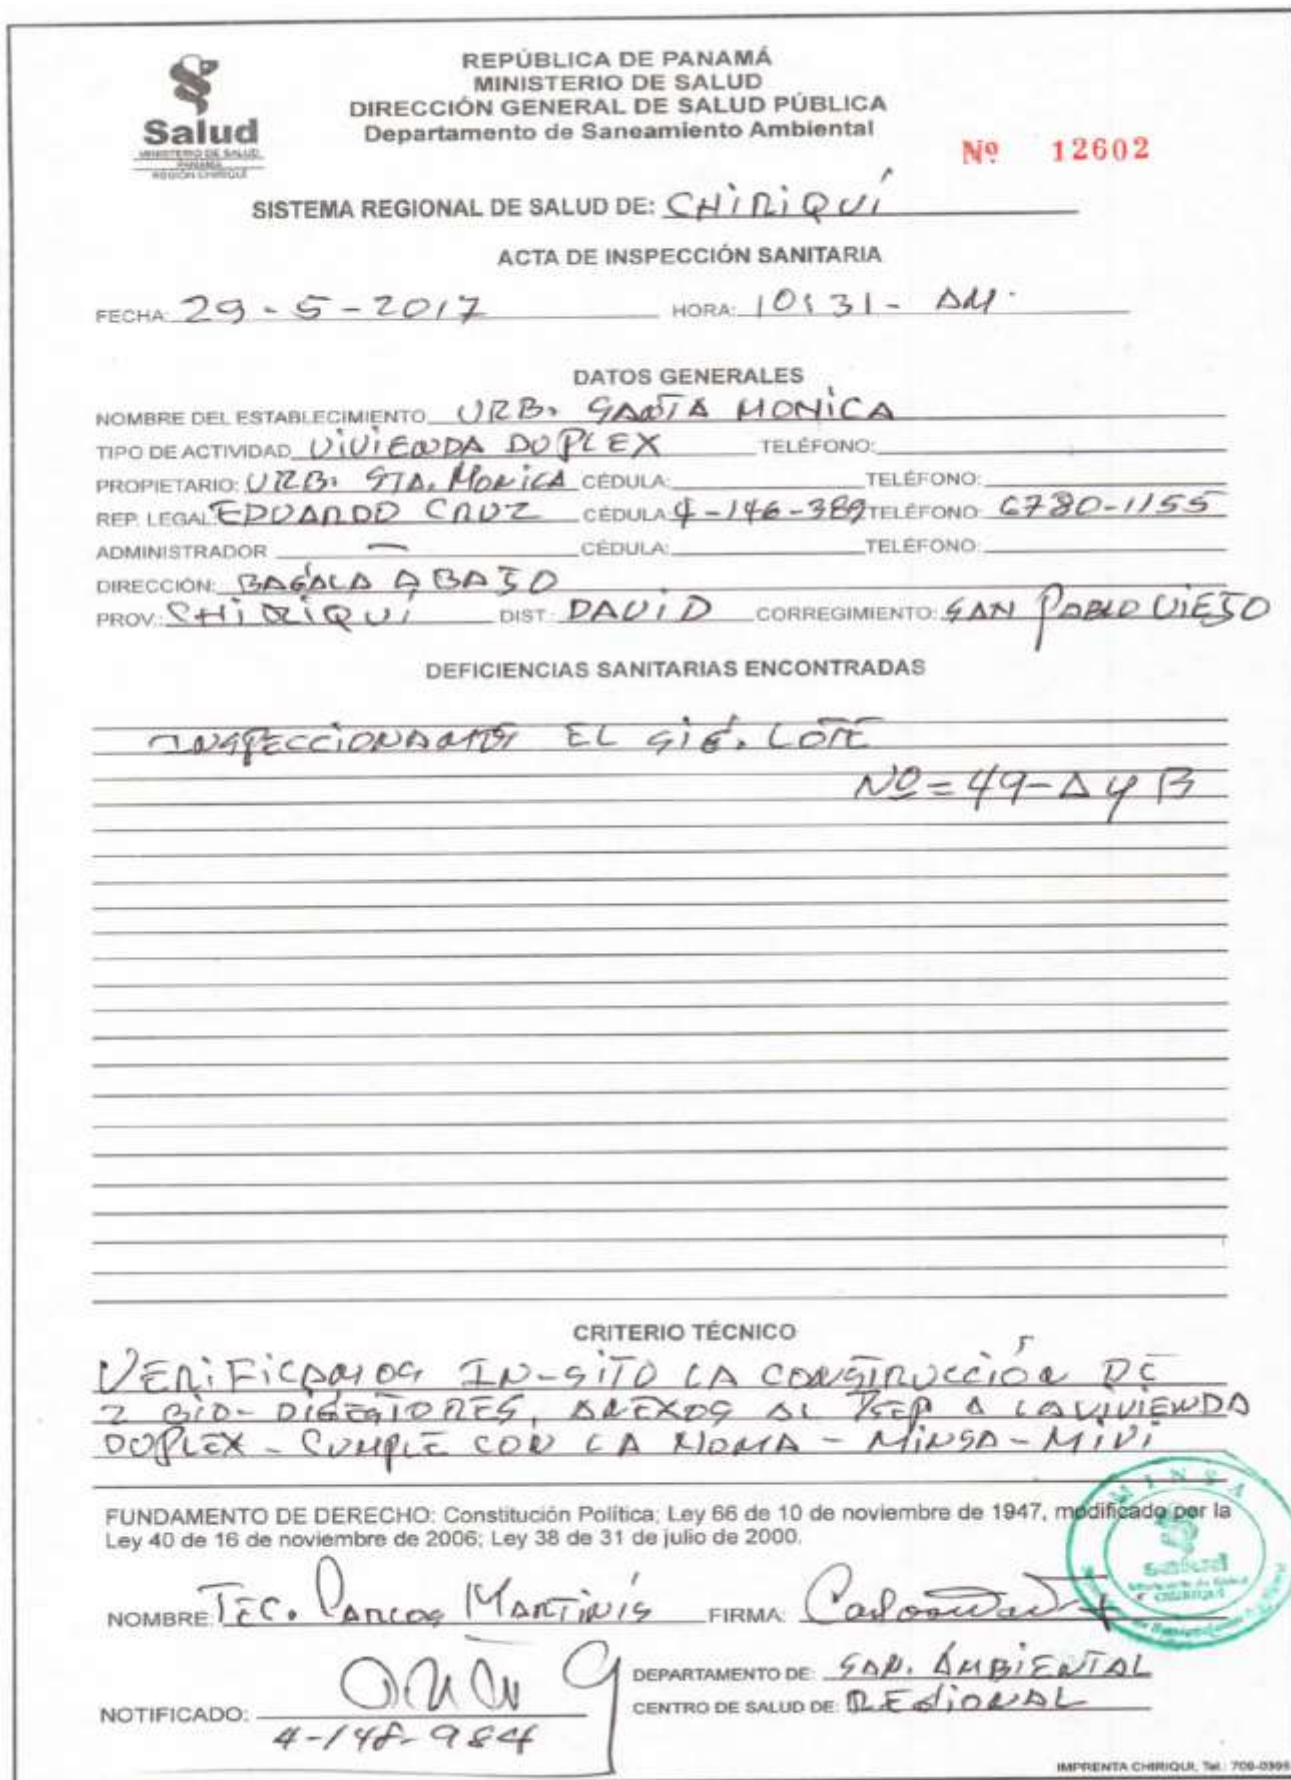 Salud
MINISTERIO DE SALUD
PANAMÁ
REGIÓN CHIRIQUÍ
REPÚBLICA DE PANAMÁ
MINISTERIO DE SALUD
DIRECCIÓN GENERAL DE SALUD PÚBLICA
Departamento de Saneamiento Ambiental
Nº 12602
SISTEMA REGIONAL DE SALUD DE: CHIRIQUÍ
ACTA DE INSPECCIÓN SANITARIA
FECHA: 29-5-2017 HORA: 10:31- AM.
DATOS GENERALES
NOMBRE DEL ESTABLECIMIENTO URB. SANTA MONICA
TIPO DE ACTIVIDAD VIVIENDA DUPLEX TELÉFONO:
PROPIETARIO: URB. STA. MONICA CÉDULA: TELÉFONO:
REP. LEGAL EDUARDO CRUZ CÉDULA: 4-146-389 TELÉFONO: 6780-1155
ADMINISTRADOR — CÉDULA: TELÉFONO:
DIRECCIÓN: BAGALA ABAJO
PROV.: CHIRIQUI DIST.: DAVID CORREGIMIENTO: SAN PABLO VIEJO
DEFICIENCIAS SANITARIAS ENCONTRADAS
INSPECCIONAMOS EL SIG. LOTE
Nº=49-A y B
CRITERIO TÉCNICO
VERIFICAMOS IN-SITO LA CONSTRUCCIÓN DE
2 BIO-DIGESTORES, ANEXOS AL A LA VIVIENDA
DUPLEX - CUMPLE CON LA NOMA - MINSA - MIVI
FUNDAMENTO DE DERECHO: Constitución Política; Ley 66 de 10 de noviembre de 1947, modificado por la
Ley 40 de 16 de noviembre de 2006; Ley 38 de 31 de julio de 2000.
MINSA
CHIRIQUI
NOMBRE: TEC. MARTINIS FIRMA:
DEPARTAMENTO DE: SAN. AMBIENTAL
NOTIFICADO: CENTRO DE SALUD DE: REGIONAL
4-148-984
IMPRENTA CHIRIQUI, Tel.: 709-0395